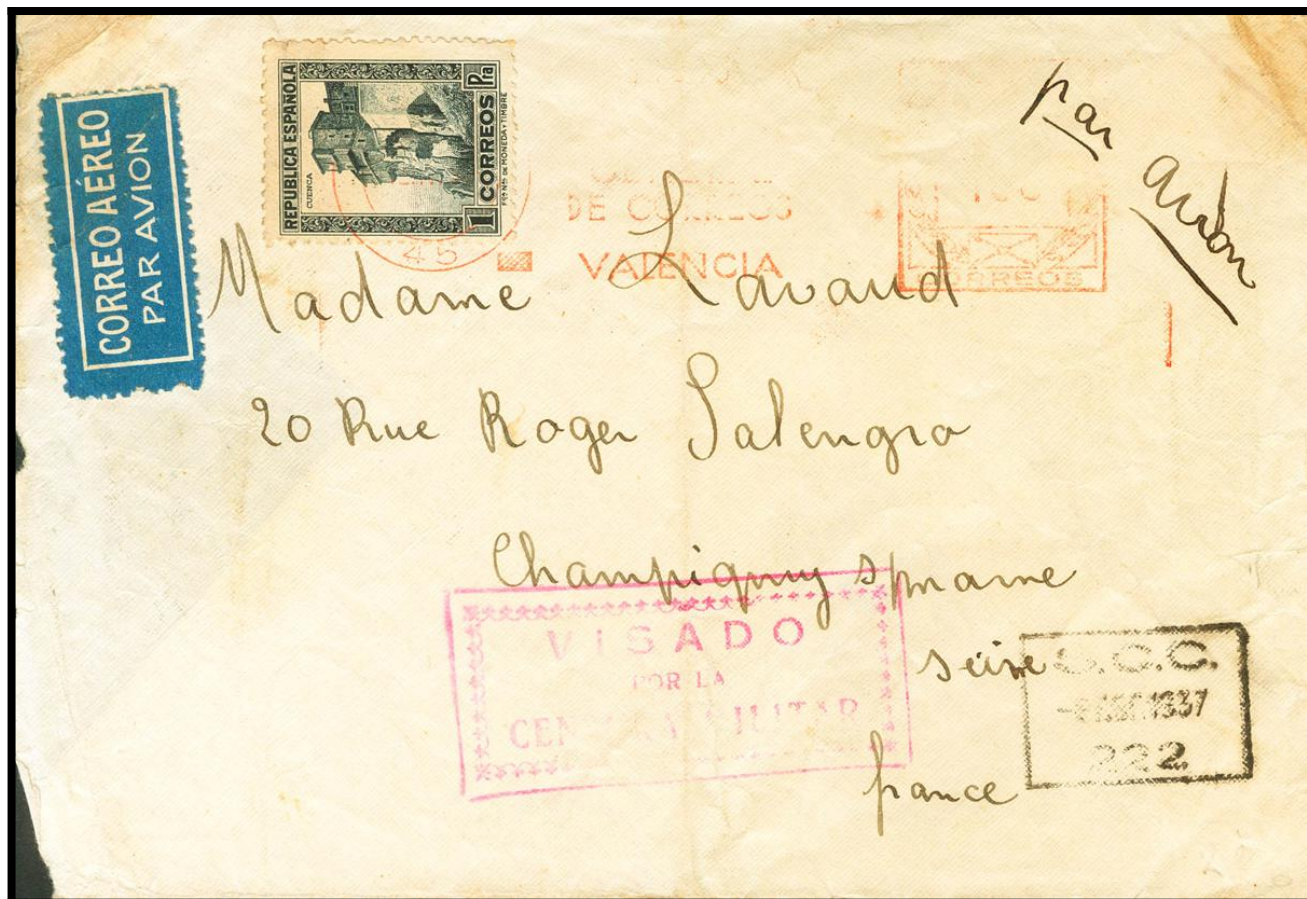 CORREO AÉREO
PAR AVION
REPUBLICA ESPAÑOLA
CUENCA
1 CORREOS Pta
45
DE CORREOS
VALENCIA
CORREOS
par avion
Madame Lavaud
20 Rue Roger Salengro
Champigny s/marne
seine
france
VISADO
POR LA
CENSURA MILITAR
S.C.C.
1937
222